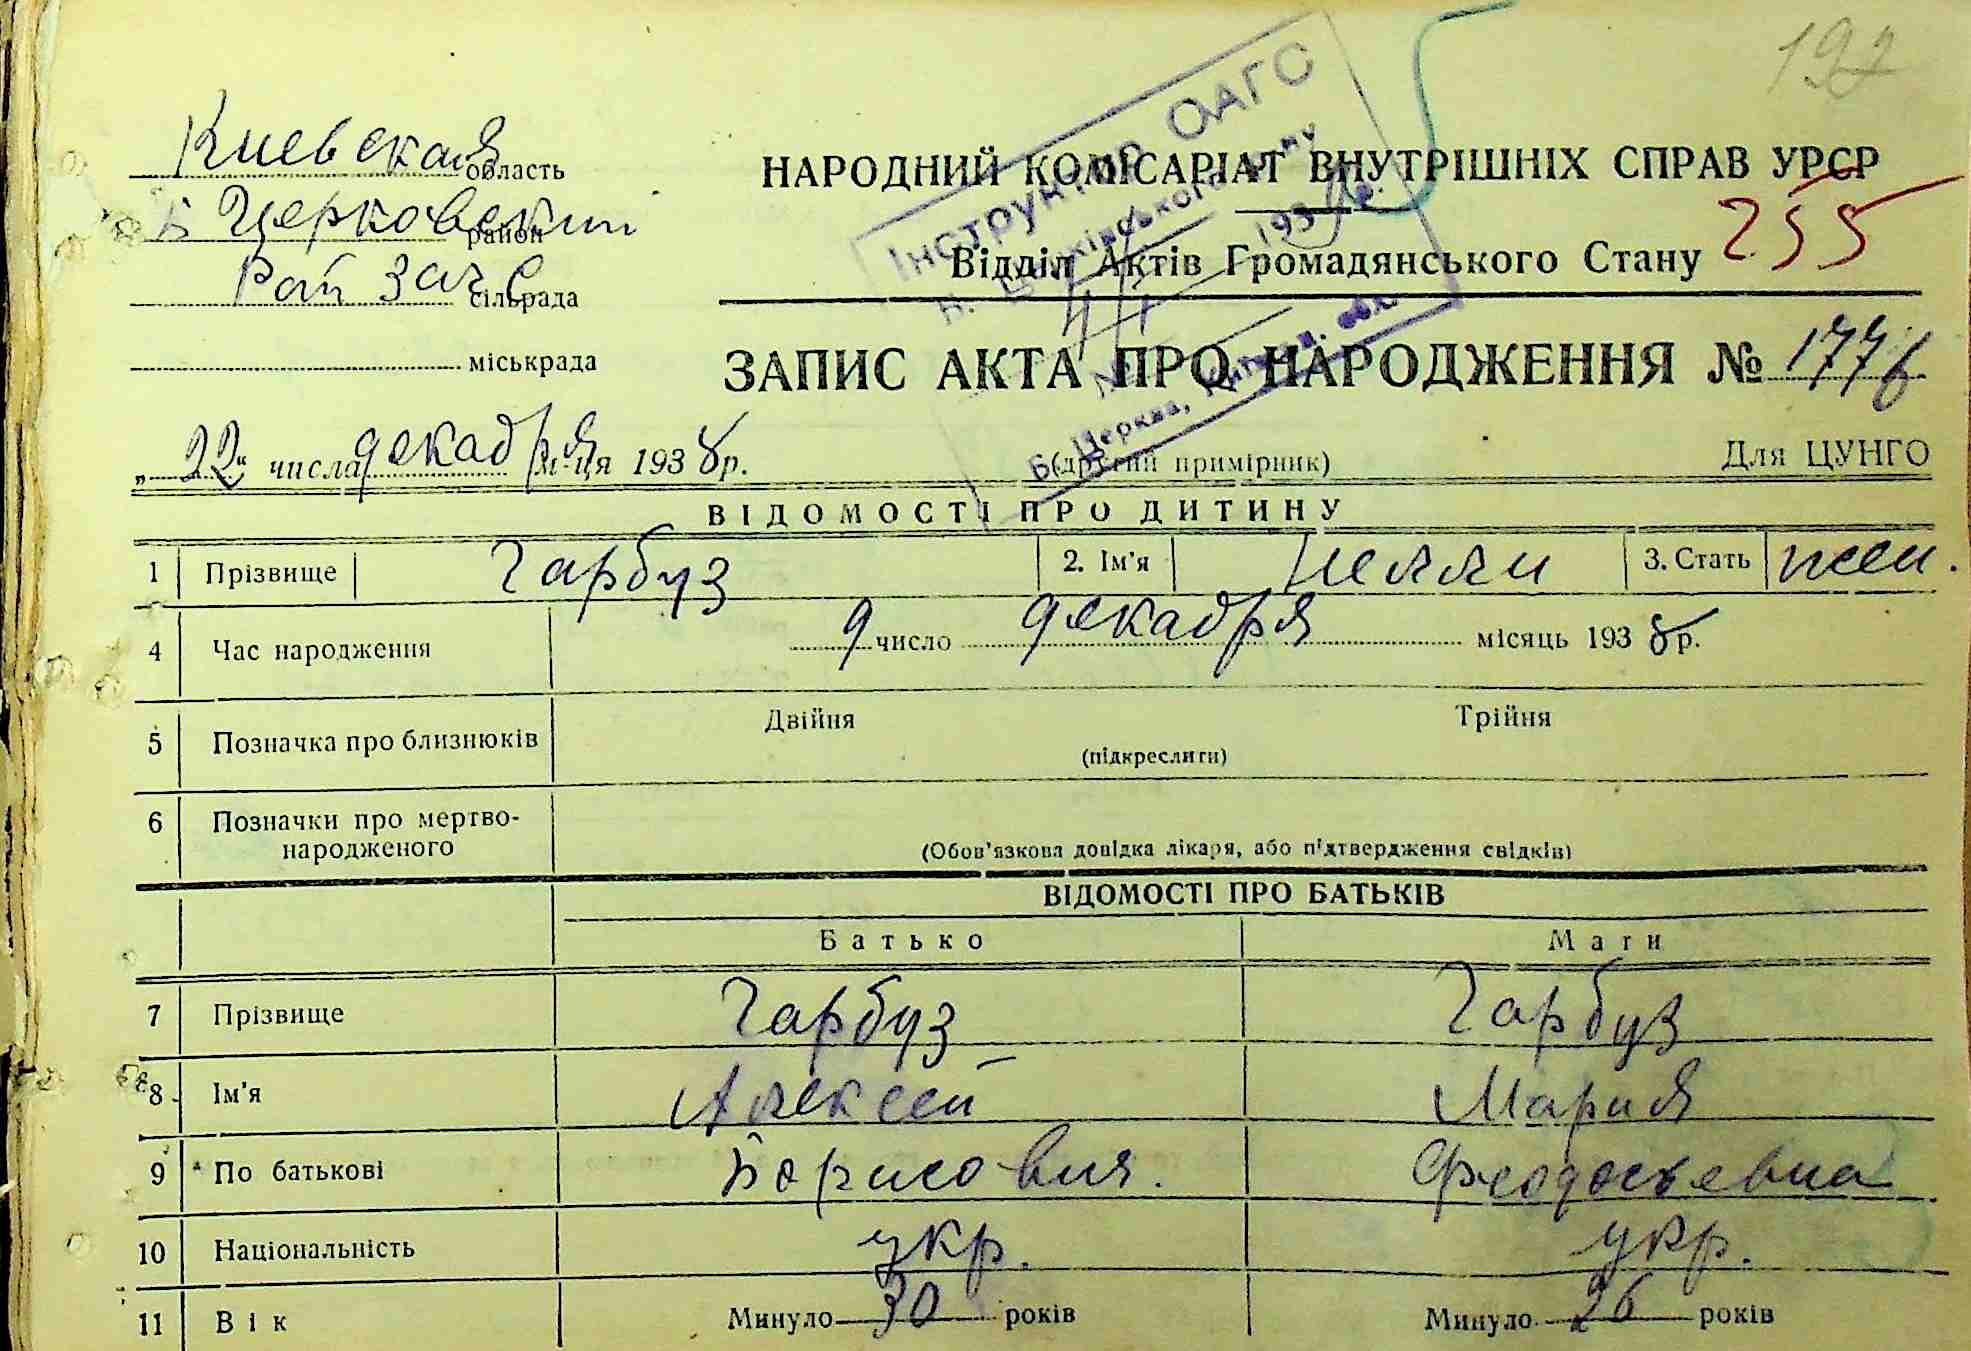 197
Киевская область
Б Церковский район
Рай Загс сільрада
міськрада
НАРОДНИЙ КОМІСАРІАТ ВНУТРІШНІХ СПРАВ УРСР
Відділ Актів Громадянського Стану 255
Інструктор ОАГС
193
Б. Церква, обл.
ЗАПИС АКТА ПРО НАРОДЖЕННЯ № 1776
„22“ числа декадря м-ця 1938 р.
(другий примірник)
Для ЦУНГО
ВІДОМОСТІ ПРО ДИТИНУ
1 Прізвище Гарбуз 2. Ім'я Нелли 3. Стать жен.
4 Час народження 9 число декадря місяць 1938 р.
5 Позначка про близнюків Двійня Трійня
(підкреслити)
6 Позначки про мертво-
народженого
(Обов'язкова довідка лікаря, або підтвердження свідків)
ВІДОМОСТІ ПРО БАТЬКІВ
Батько Мати
7 Прізвище Гарбуз Гарбуз
8 Ім'я Алексей Мария
9 По батькові Борисович. Феодосьевна
10 Національність укр. укр.
11 Вік Минуло 30 років Минуло 26 років